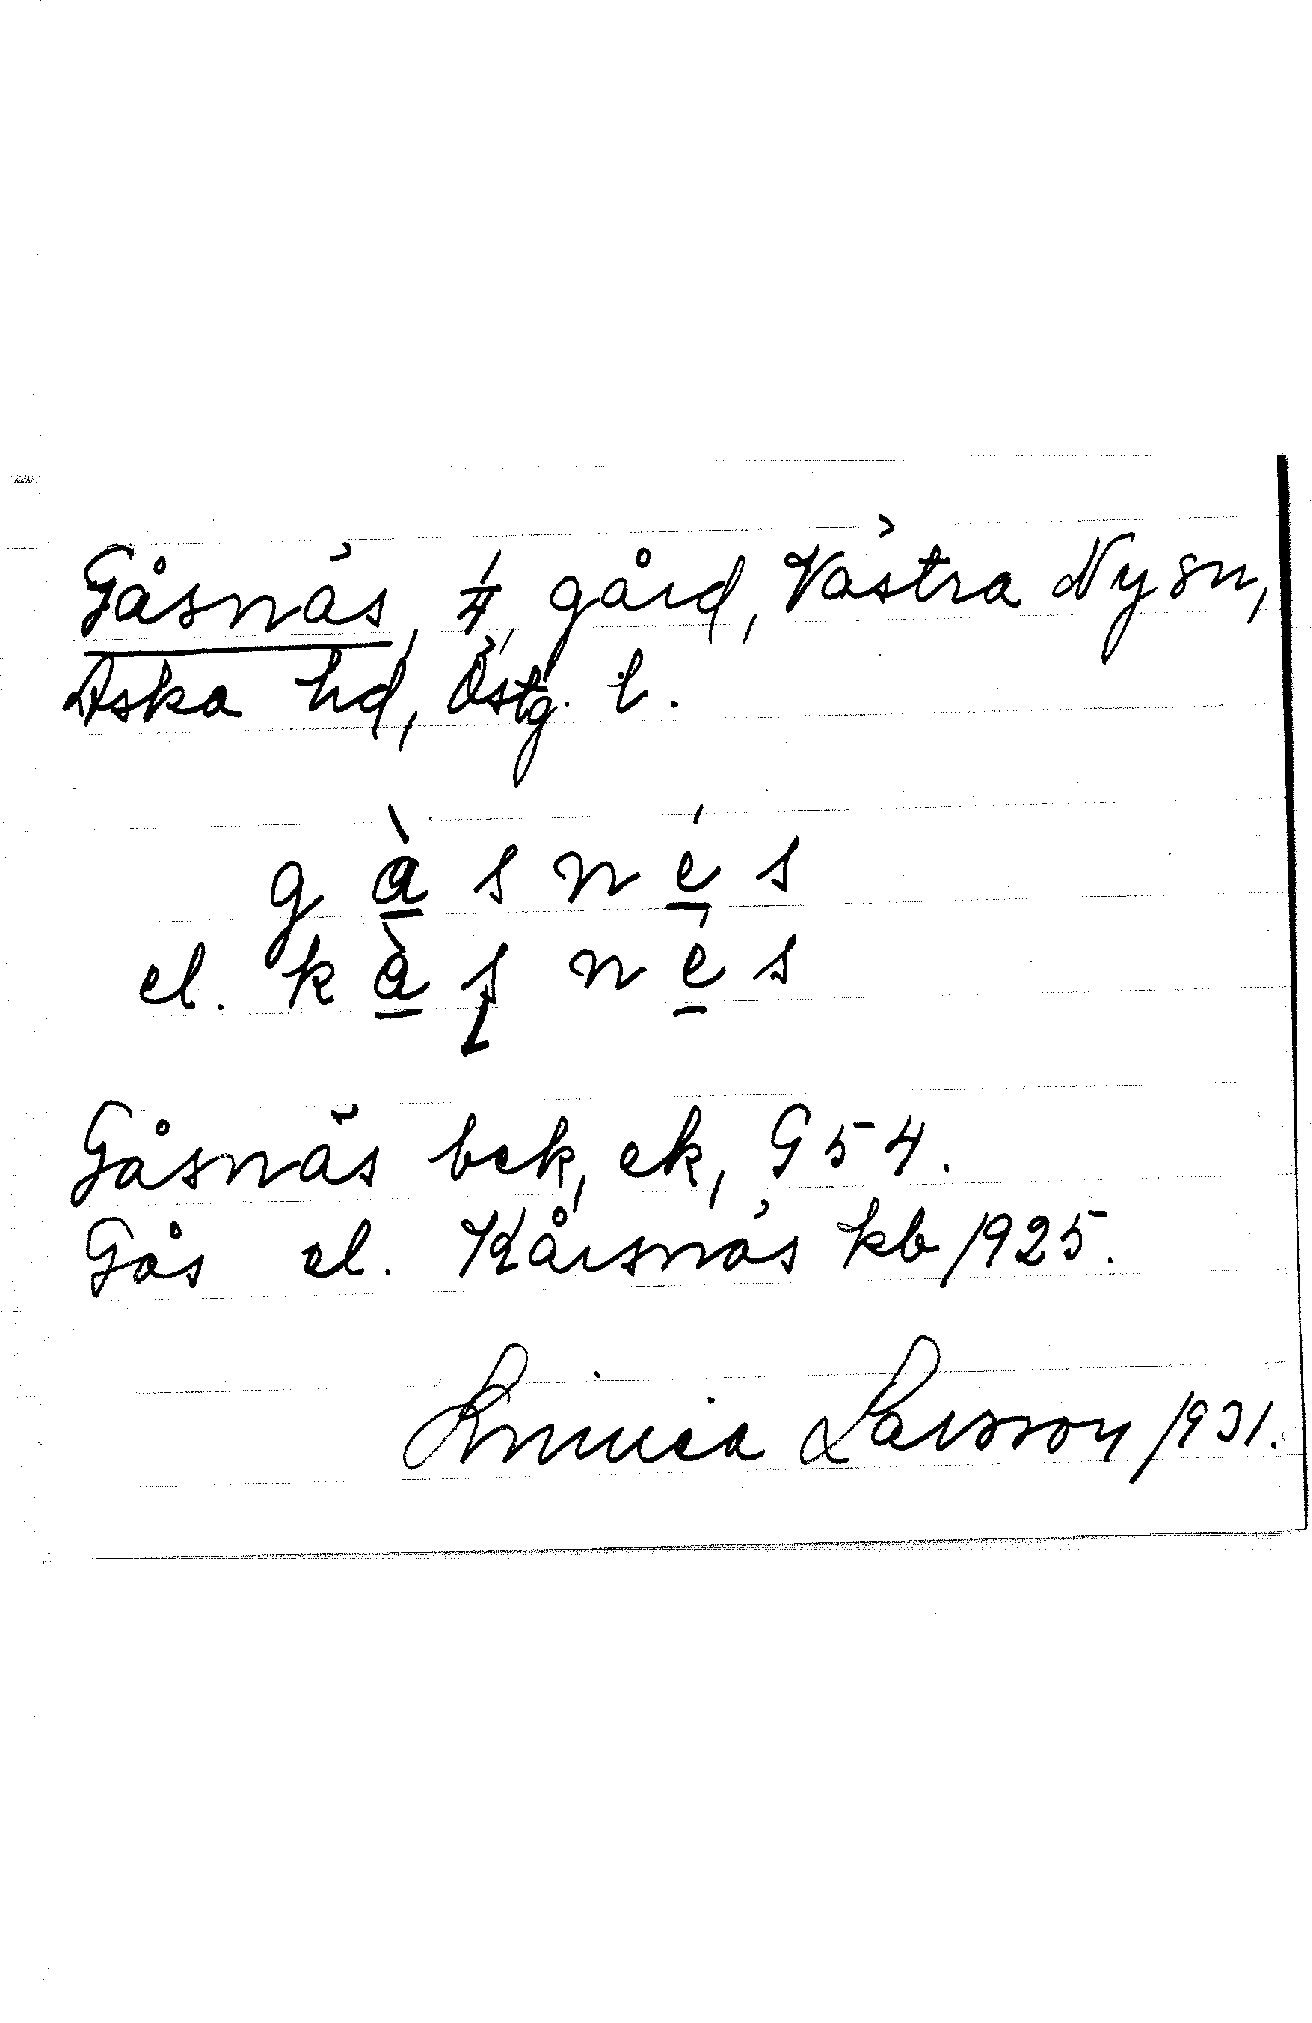 Gåsnäs, 1/4, gård, Västra Ny sn,
Aska hd, Östg. l.
g à s n é s
el. k à s n é s
Gåsnäs bek, ek, G 54.
Gås el. Kårsnäs kb 1925.
Linnea Larsson 1931.